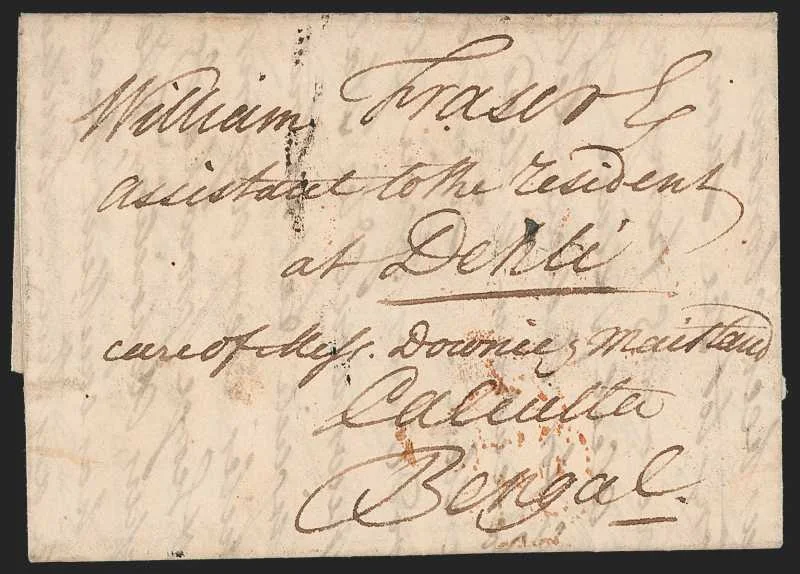 William Fraser Esq
assistant to the resident
at Dehli
care of Mess. Downie & Maitland
Calcutta
Bengal.